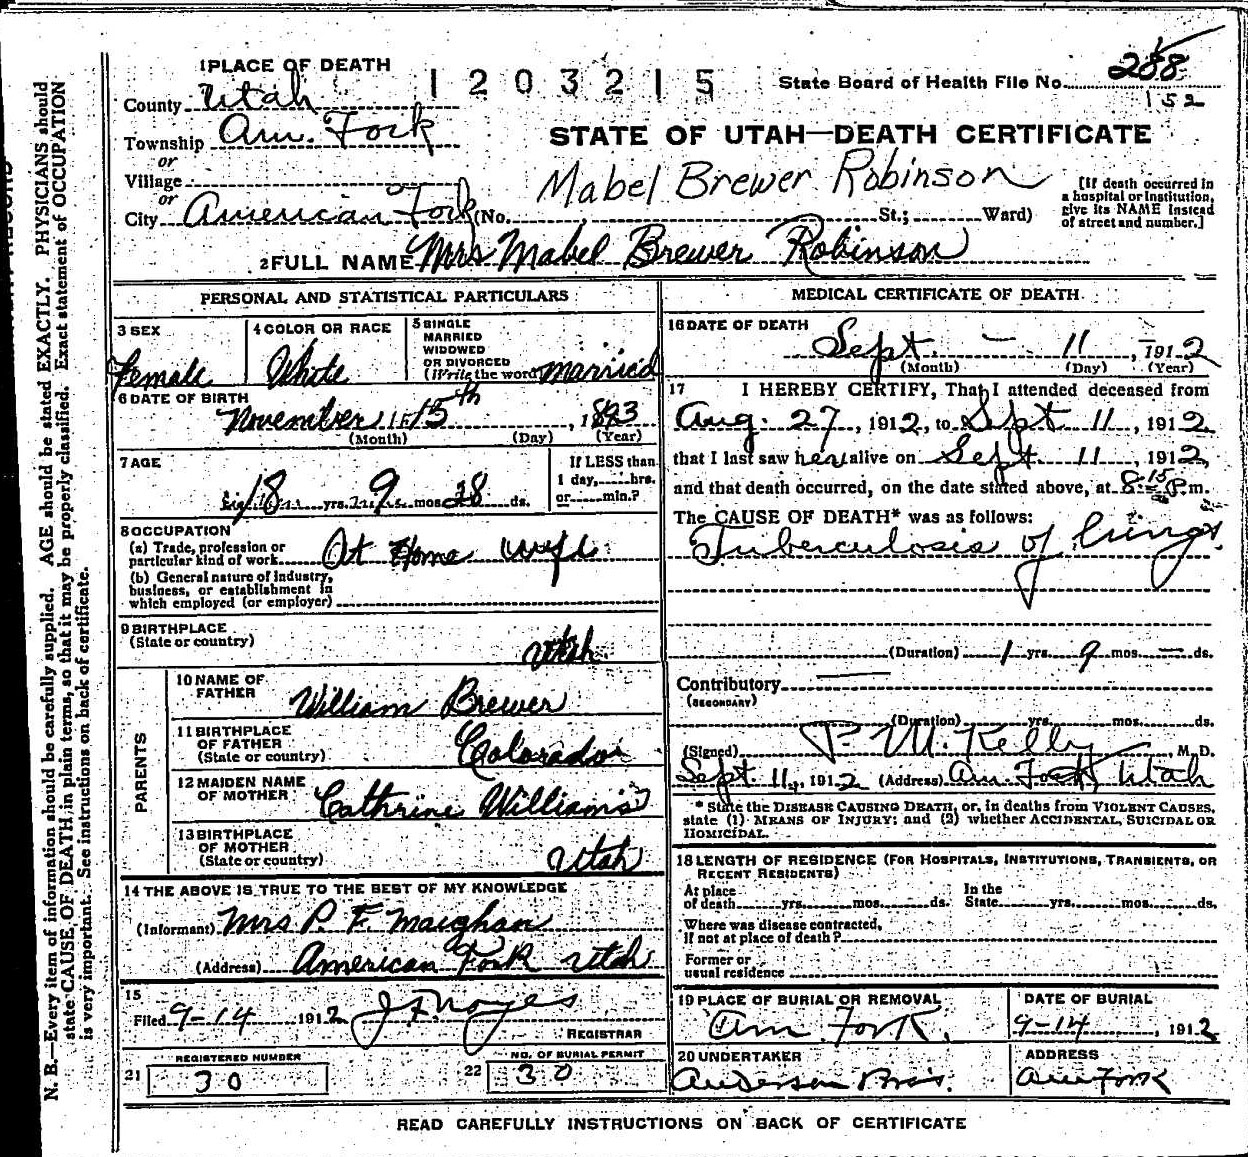 1 PLACE OF DEATH
1203215
State Board of Health File No. 288
152
County Utah
Township Am. Fork
or
Village
or
City American Fork (No. St.; Ward)
STATE OF UTAH—DEATH CERTIFICATE
Mabel Brewer Robinson
[If death occurred in
a hospital or institution,
give its NAME instead
of street and number.]
2 FULL NAME Mrs Mabel Brewer Robinson
PERSONAL AND STATISTICAL PARTICULARS
3 SEX
Female
4 COLOR OR RACE
White
5 SINGLE
MARRIED
WIDOWED
OR DIVORCED
(Write the word) married
6 DATE OF BIRTH
November 15th, 1893
(Month) (Day) (Year)
7 AGE
18 yrs. 9 mos. 28 ds.
If LESS than
1 day, hrs.
or min.?
8 OCCUPATION
(a) Trade, profession or
particular kind of work At Home wife
(b) General nature of industry,
business, or establishment in
which employed (or employer)
9 BIRTHPLACE
(State or country)
Utah
PARENTS
10 NAME OF
FATHER
William Brewer
11 BIRTHPLACE
OF FATHER
(State or country)
Colorado
12 MAIDEN NAME
OF MOTHER
Cathrine Williams
13 BIRTHPLACE
OF MOTHER
(State or country)
Utah
14 THE ABOVE IS TRUE TO THE BEST OF MY KNOWLEDGE
(Informant) Mrs P. F. Maughan
(Address) American Fork Utah
15
Filed 9-14 1912 J F Noyes
REGISTRAR
REGISTERED NUMBER
21 30
NO. OF BURIAL PERMIT
22 30
MEDICAL CERTIFICATE OF DEATH
16 DATE OF DEATH
Sept. — 11, 1912
(Month) (Day) (Year)
17 I HEREBY CERTIFY, That I attended deceased from
Aug. 27, 1912, to Sept 11, 1912
that I last saw her alive on Sept. 11, 1912,
and that death occurred, on the date stated above, at 8:15 P.m.
The CAUSE OF DEATH* was as follows:
Tuberculosis of lungs
(Duration) 1 yrs. 9 mos. — ds.
Contributory
(SECONDARY)
(Duration) yrs. mos. ds.
(Signed) P. M. Kelly, M. D.
Sept 11, 1912 (Address) Am. Fork, Utah
* State the DISEASE CAUSING DEATH, or, in deaths from VIOLENT CAUSES,
state (1) MEANS OF INJURY; and (2) whether ACCIDENTAL, SUICIDAL OR
HOMICIDAL.
18 LENGTH OF RESIDENCE (FOR HOSPITALS, INSTITUTIONS, TRANSIENTS, OR
RECENT RESIDENTS)
At place
of death yrs. mos. ds.
In the
State yrs. mos. ds.
Where was disease contracted,
If not at place of death?
Former or
usual residence
19 PLACE OF BURIAL OR REMOVAL
Am Fork.
DATE OF BURIAL
9-14, 1912
20 UNDERTAKER
Anderson Bros.
ADDRESS
Am Fork
READ CAREFULLY INSTRUCTIONS ON BACK OF CERTIFICATE
N. B.—Every item of information should be carefully supplied. AGE should be stated EXACTLY. PHYSICIANS should
state CAUSE OF DEATH in plain terms, so that it may be properly classified. Exact statement of OCCUPATION
is very important. See instructions on back of certificate.